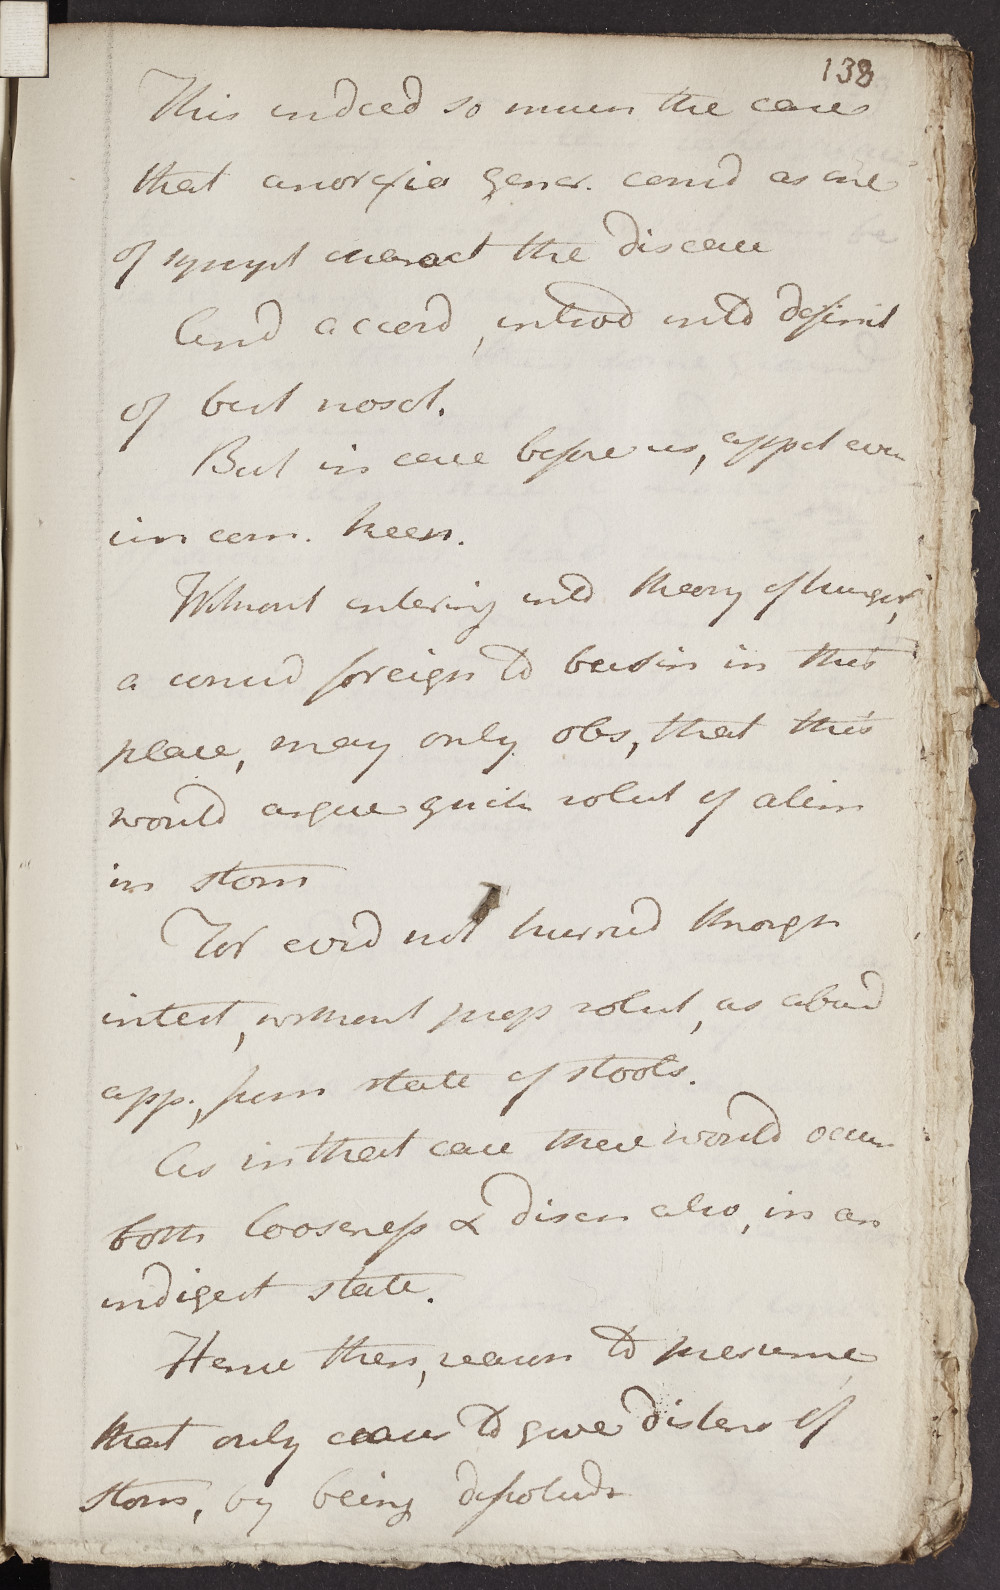 138
This indeed so much the case
that anorexia gener. consid as one
of sympt charact the disease
And accord, introd into definit
of best nosol.
But in case before us, appet even
un com. keen.
Without entering into theory of hunger,
a consid foreign to busin in this
place, may only obs, that this
would argue quick solut of alim
in stom
For evid not hurried through
intest, without prop solut, as abund
app., from state of stools.
As in that case there would occur
both looseness & disch also, in an
indigest state.
Hence then, reason to presume
that only ceases to give distens of
stom, by being dissolved